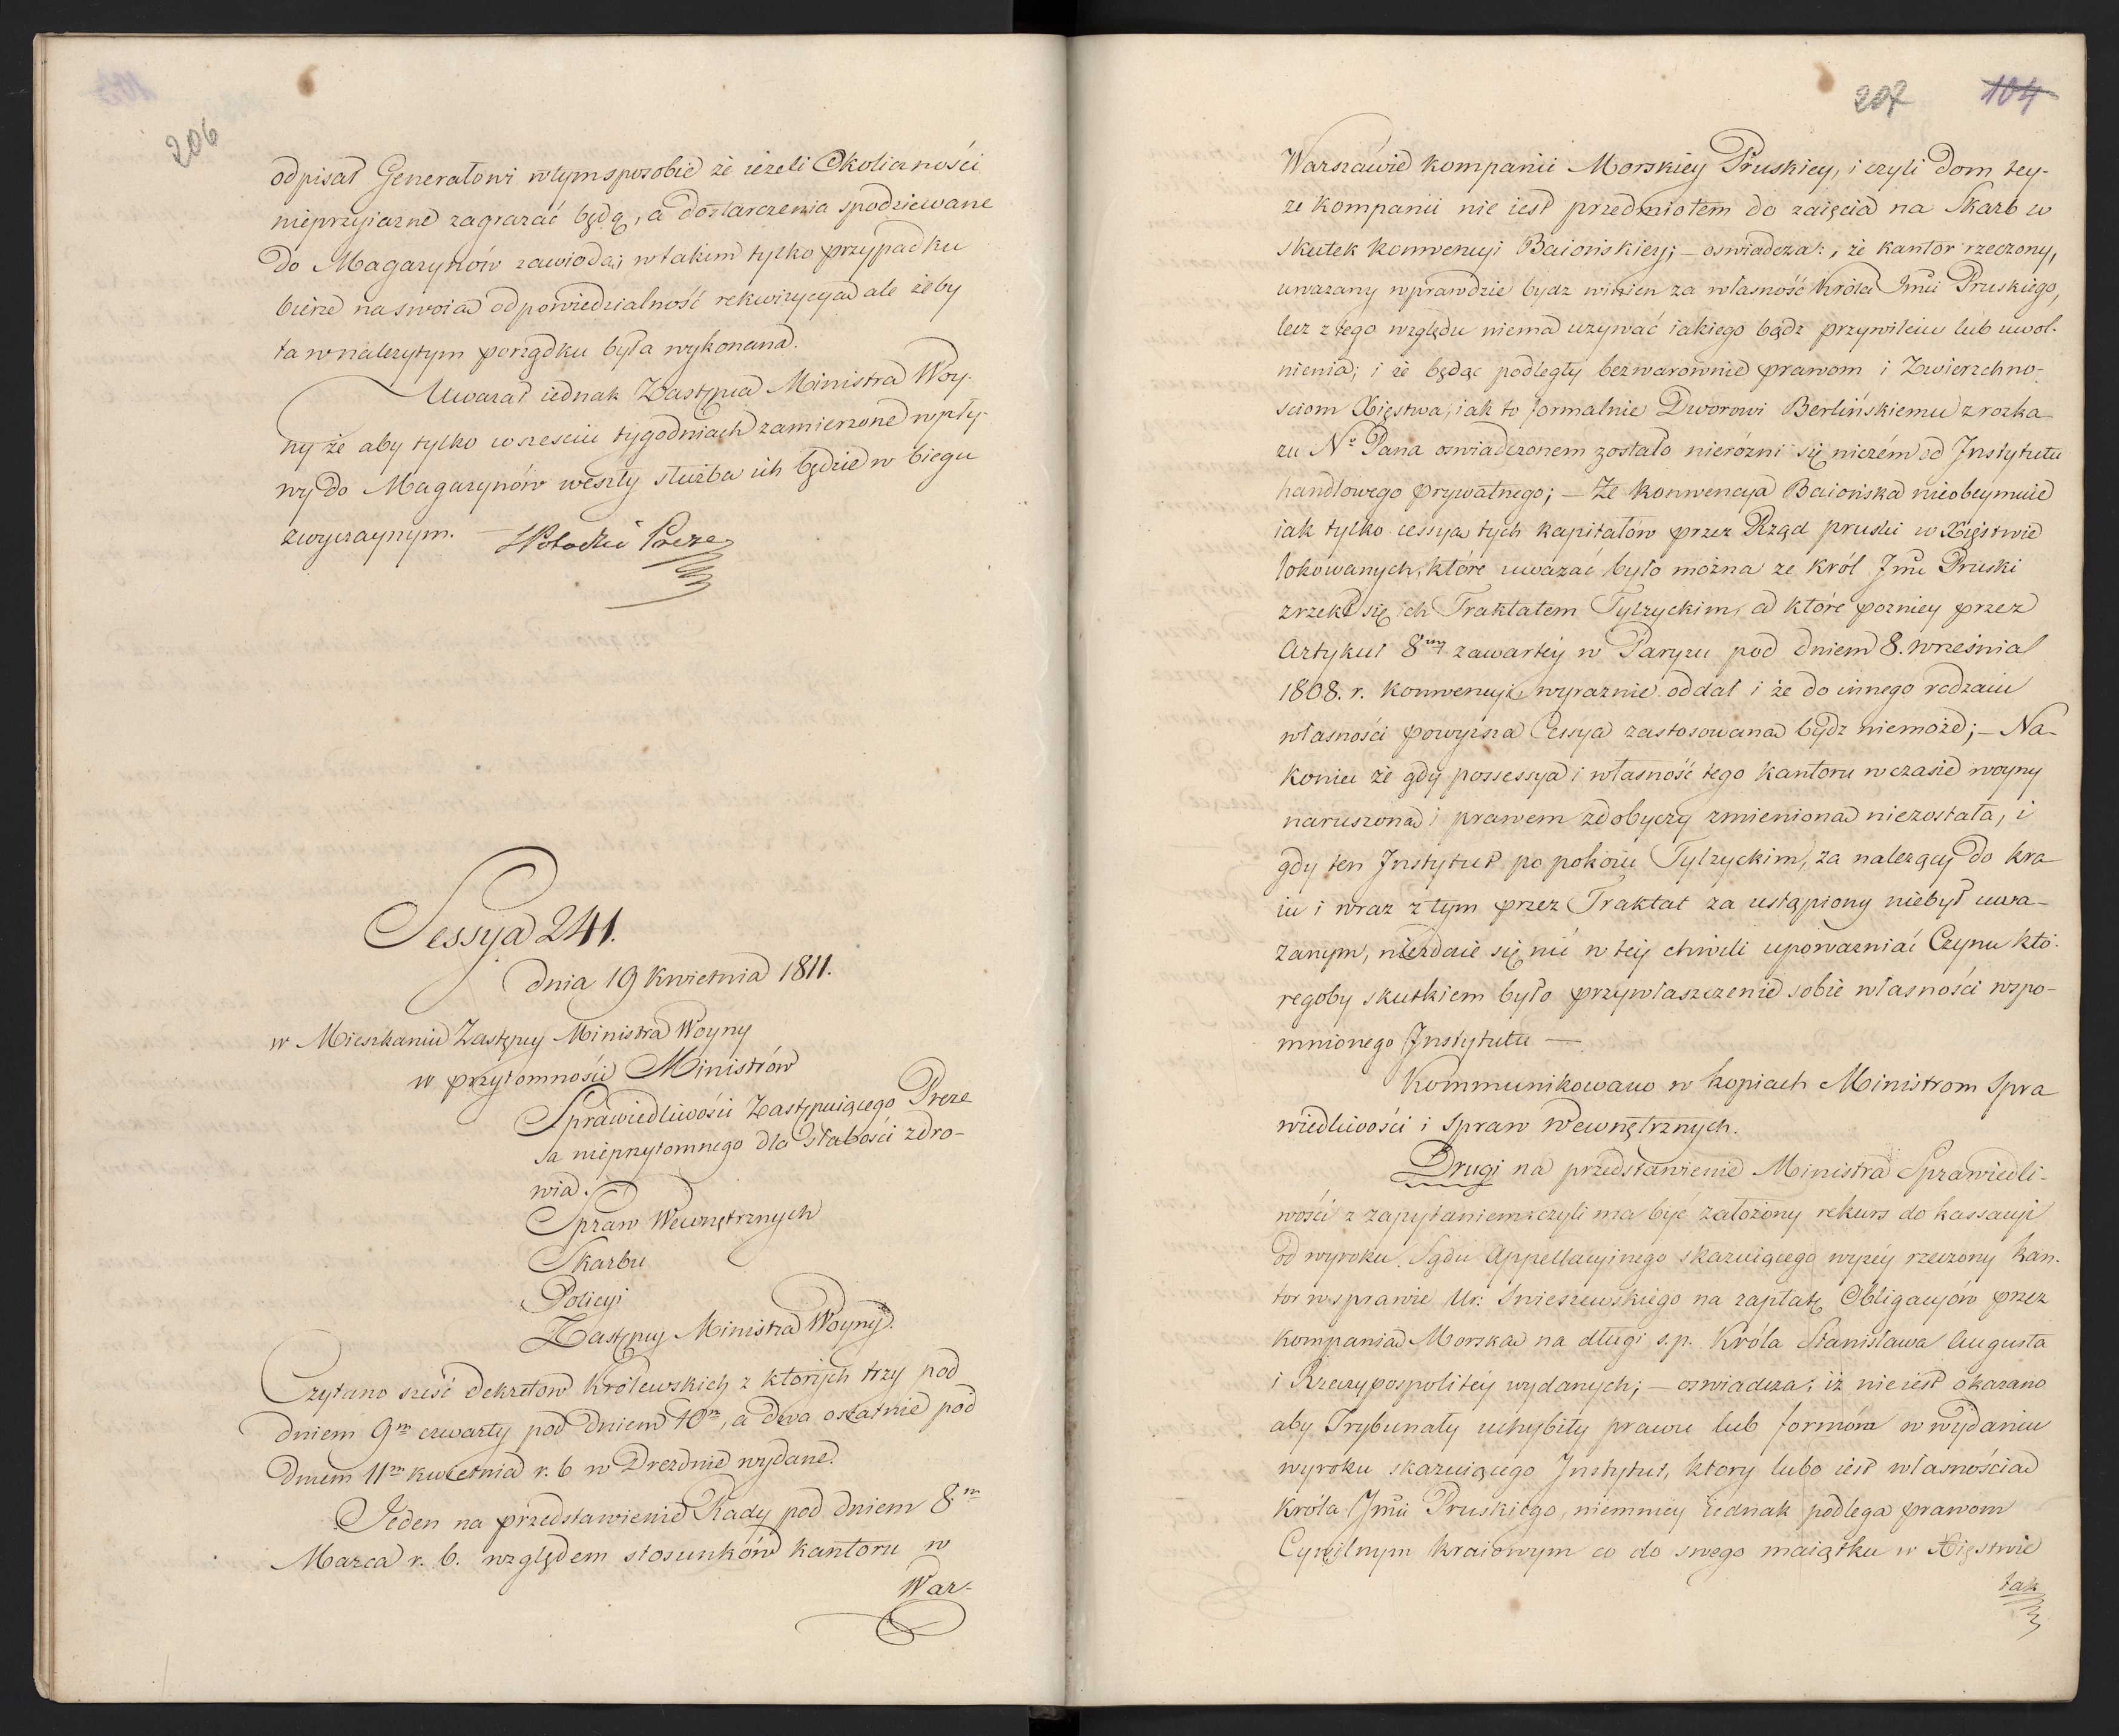 206
odpisał Generałowi w tym sposobie że ieżeli Okoliczności
nieprzyiazne zagrażać będą, a dostarczenia spodziewane
do Magazynów zawiodą, w takim tylko przypadku
bierze na swoią odpowiedzialność rekwizycyą ale żeby
ta w należytym porządku była wykonana.
Uważał iednak Zastępca Ministra Woy-
ny że aby tylko w sześciu tygodniach zamierzone wpły-
wy do Magazynów weszły służba ich będzie w biegu
zwyczaynym. — Potocki Preze
Sessya 241.
dnia 19 Kwietnia 1811.
w Mieszkaniu Zastępcy Ministra Woyny
w przytomności Ministrów
Sprawiedliwości Zastępuiącego Preze
sa nieprzytomnego dla słabości zdro-
wia.
Spraw Wewnętrznych
Skarbu
Policyi
Zastępcy Ministra Woyny.
Czytano sześć dekretów Królewskich z których trzy pod
dniem 9m czwarty pod dniem 10m, a dwa ostatnie pod
dniem 11m kwietnia r. b w Dreznie wydane.
Jeden na przedstawienie Rady pod dniem 8m
Marca r. b. względem stosunków kantoru w
War-
207 104
Warszawie kompanii Morskiey Pruskiey, i czyli dom tey-
że kompanii nie iest przedmiotem do zaięcia na Skarb w
skutek konwencyi Baiońskiey; — oświadcza:, że kantor rzeczony,
uważany wprawdzie bydz winien za własność Króla Jmci Pruskiego,
lecz z tego względu niema używać iakiego bądz przywileiu lub uwol-
nienia; i że będąc podległy bezwarownie prawom i Zwierzchno-
ściom Xięstwa, iak to formalnie Dworowi Berlińskiemu z rozka-
zu No Pana oswiadczonem zostało nierózni się niczém od Instytutu
handlowego prywatnego; — Że konwencya Baiońska nieobeymuie
iak tylko cessyą tych kapitałów przez Rząd pruski w Xięstwie
lokowanych, które uważać było można że Król Jmć Pruski
zrzekł się ich Traktatem Tylzyckim, a które pozniey przez
Artykuł 8my zawartéy w Paryżu pod dniem 8. września
1808. r. konwencyi wyraznie oddał i że do innego rodzaiu
własności powyższa Cessya zastosowana bydz niemoże; — Na-
koniec że gdy possessya i własność tego kantoru w czasie woyny
naruszona i prawem zdobyczy zmieniona niezostała, i
gdy ten Instytut po pokoiu Tylzyckim, za należący do kra
iu i wraz z tym przez Traktat za ustąpiony niebył uwa-
żanym, niezdaie się nic w téy chwili upoważniać Czynu któ-
regoby skutkiem było przywłaszczenie sobie własności wspo-
mnionego Instytutu —
Kommunikowano w kopiach Ministrom Spra
wiedliwości i Spraw Wewnętrznych.
Drugi na przedstawienie Ministra Sprawiedli-
wości z zapytaniem czyli ma być założony rekurs do kassacyi
od wyroku Sądu Appellacyinego skazuiącego wyżéy rzeczony kan-
tor w sprawie Ur: Snieszewskiego na zapłatę Obligacyów przez
kompanią Morską na długi s.p. Króla Stanisława Augusta
i Rzeczypospolitéy wydanych; — oswiadcza, iż nie iest okazano
aby Trybunały uchybiły prawu lub formóm w wydaniu
wyroku skazuiącego Instytut, który lubo iest własnością
Króla Jmci Pruskiego, niemniey iednak podlega prawom
Cywilnym kraiowym co do swego maiątku w Xięstwie
tak